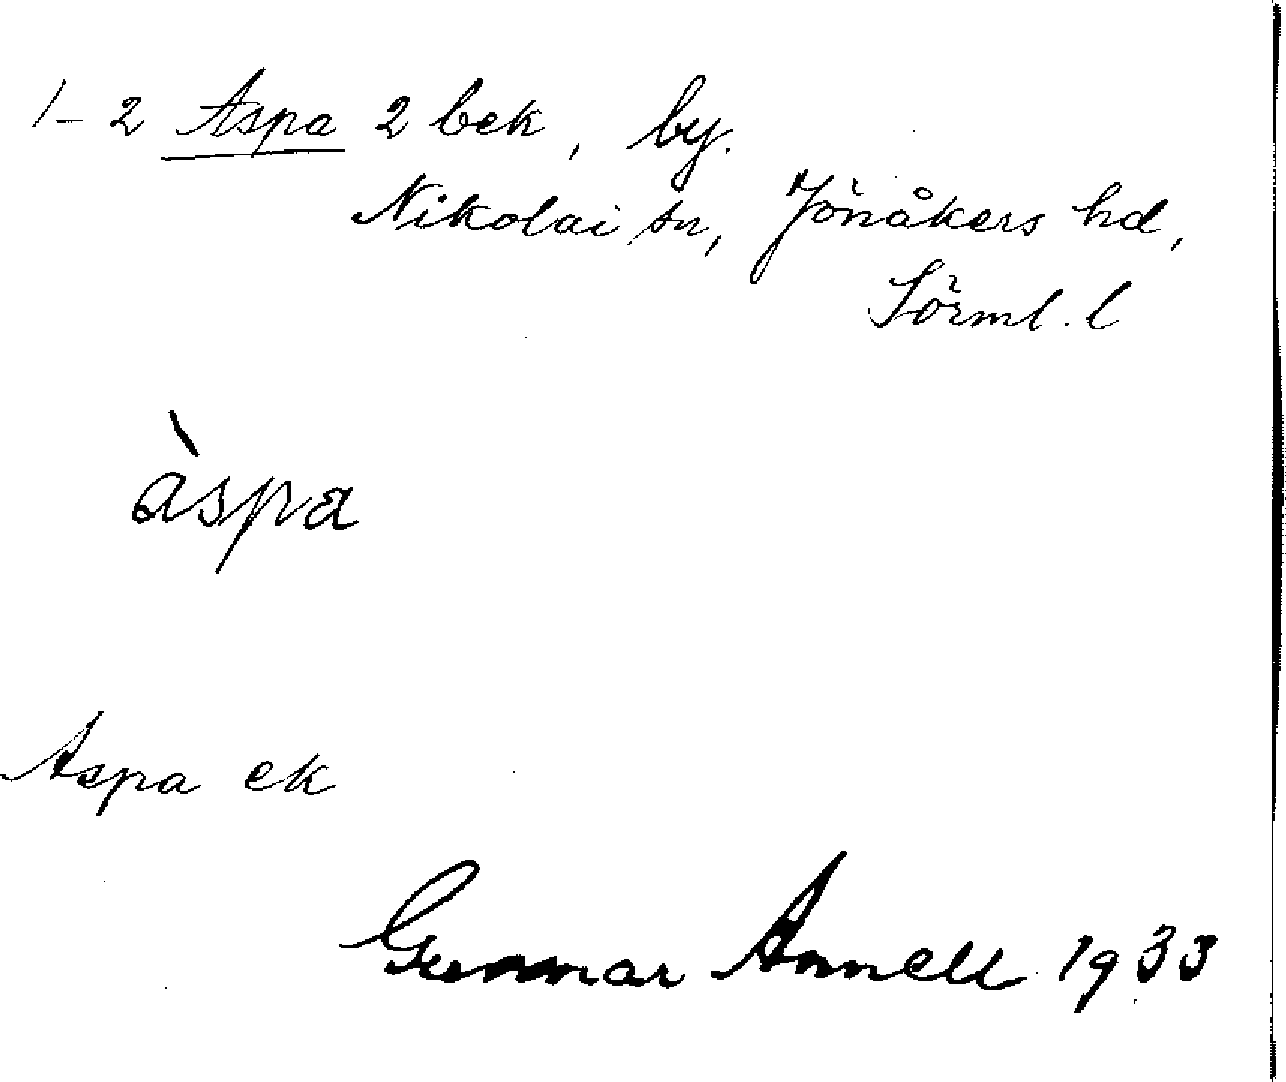 1-2 Aspa 2 bek, by.
Nikolai sn, Jönåkers hd,
Sörml. l
àspa
Aspa ek
Gunnar Annell 1933